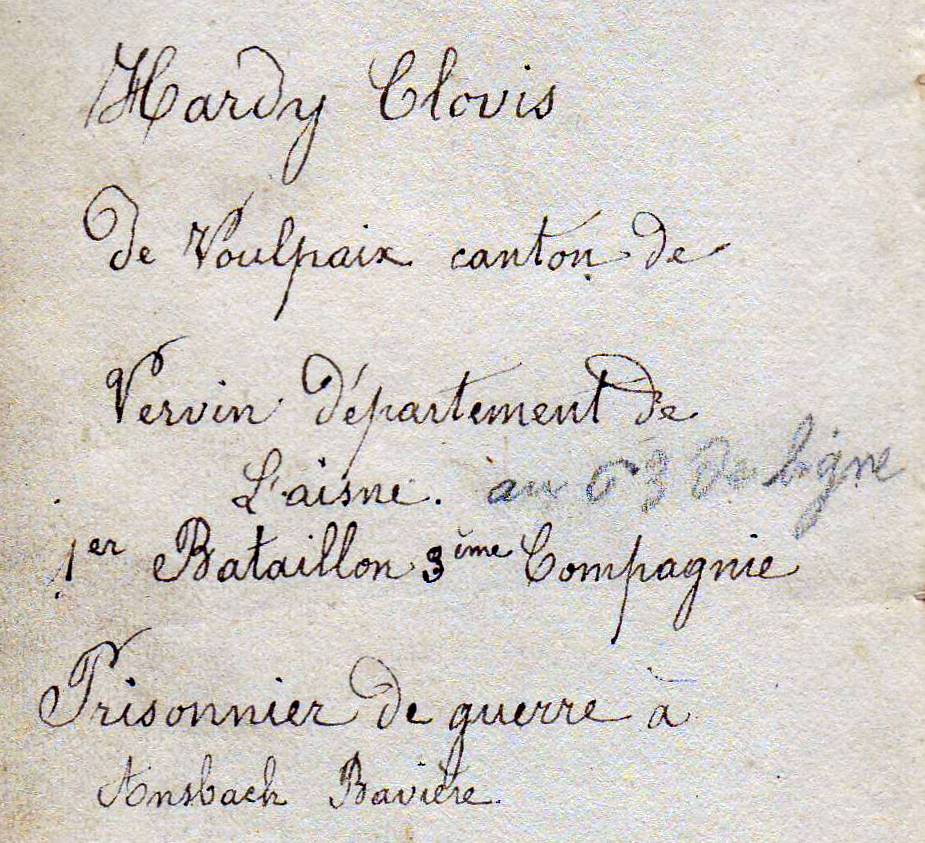 Hardy Clovis
de Voulpaix canton de
Vervin département de
L'aisne. au 63 de ligne
1er Bataillon 3ème Compagnie
Prisonnier de guerre à
Ansbach Bavière.